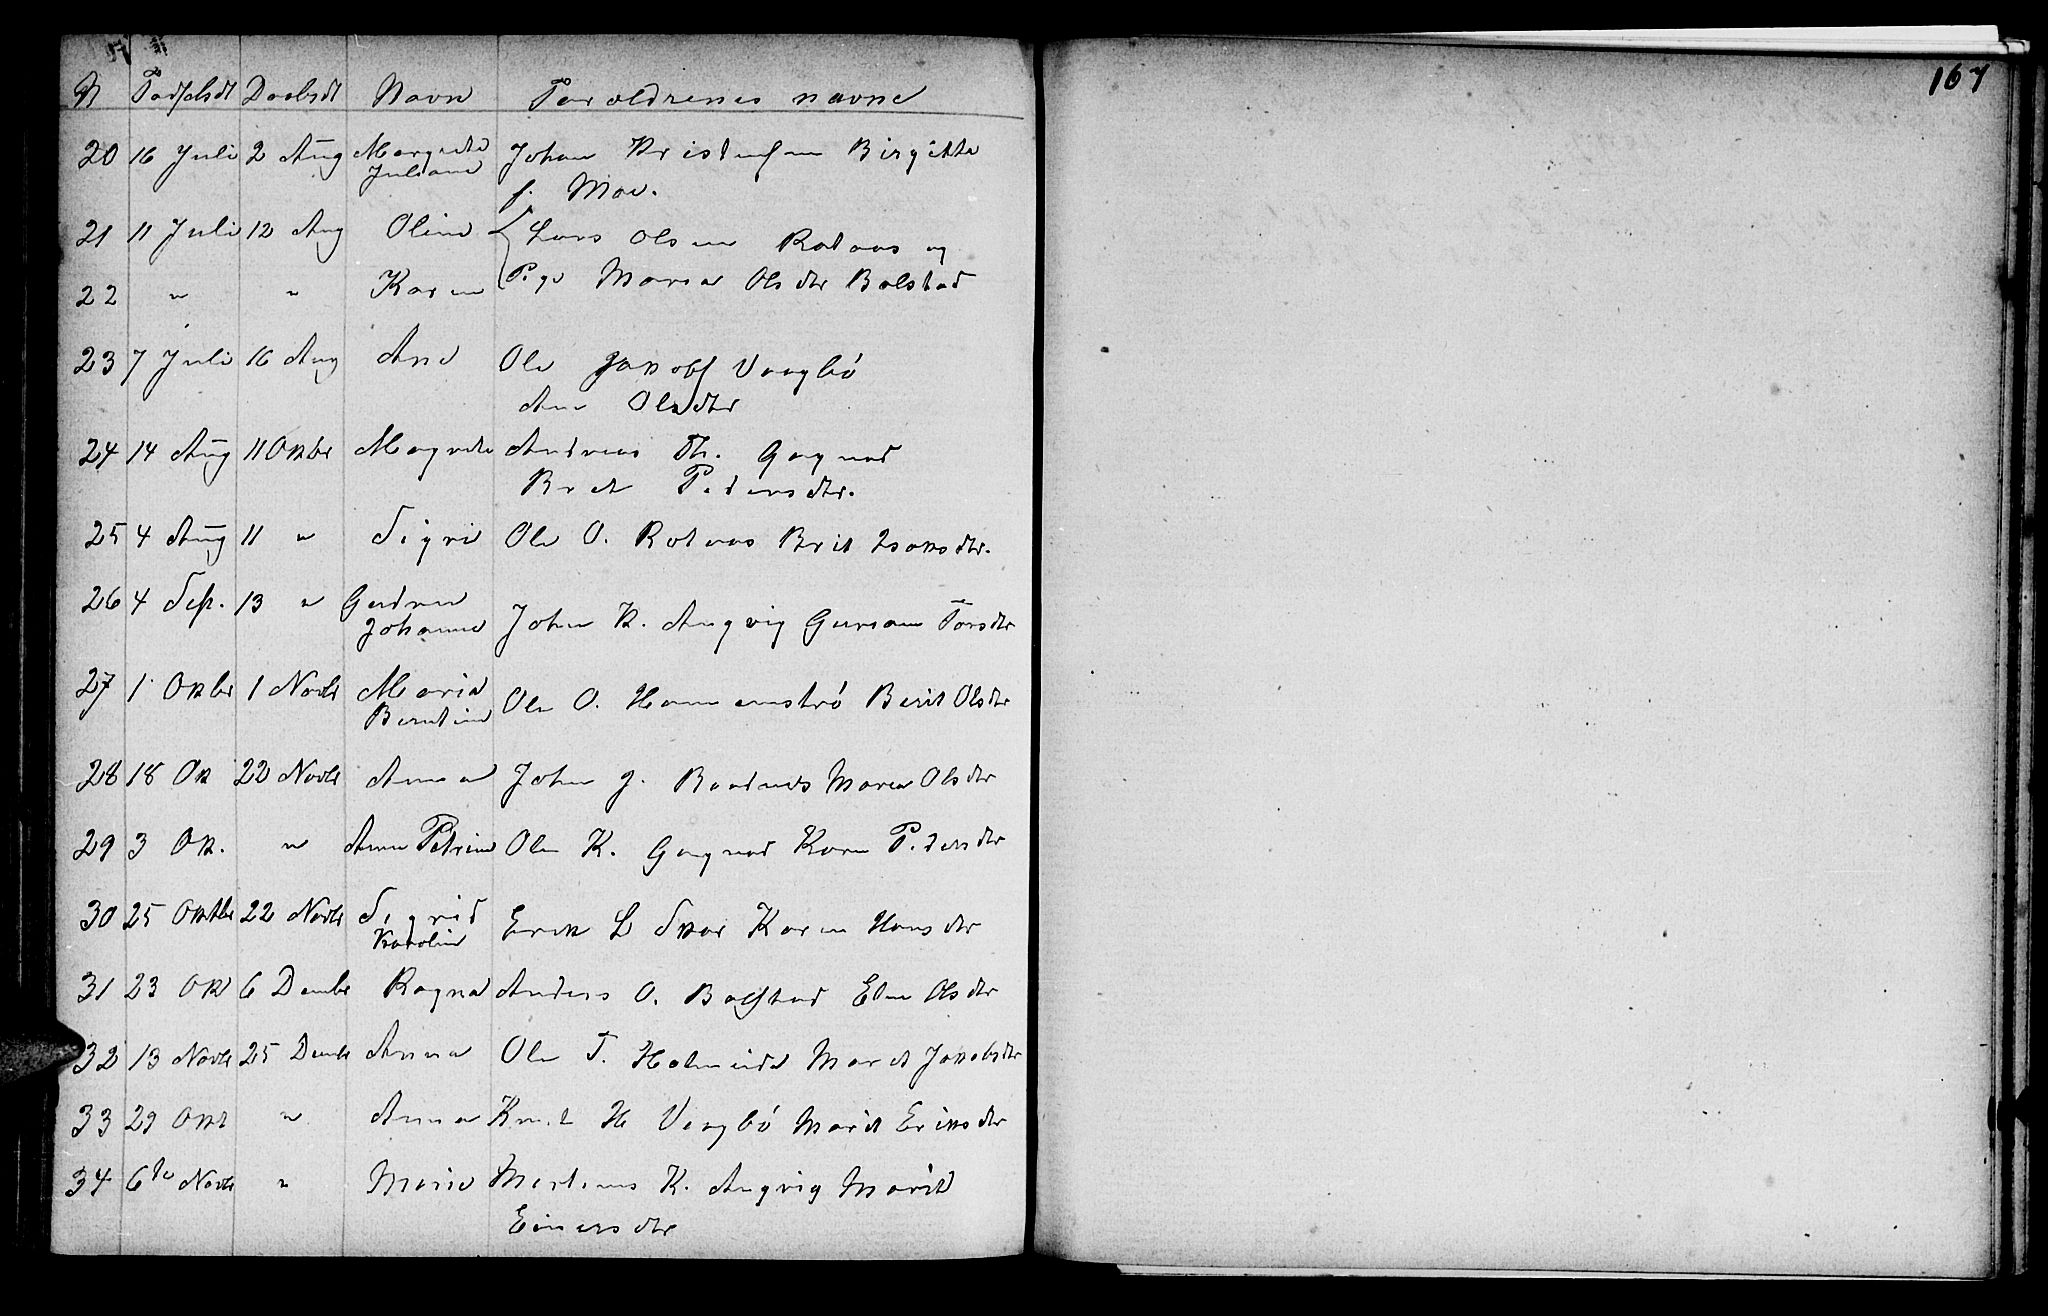 167
N Fødselsdt Daabsdt Navn Forældrenes navne
20 16 Juli 2 Aug Margrete Juliane Johan Kristensen Birgitte
f. Moe.
21 11 Juli 12 Aug Oline Lars Olsen Rotaas og
22 " " Karen Pige Maria Olsdtr Bolstad
23 7 Juli 16 Aug Ane Ole Jakobs Vaagbø
Ane Olsdtr
24 14 Aug 11 Oktbr Magrete Andreas Th. Gagnad
Bret Pedersdtr.
25 4 Aug 11 " Sigri Ole O. Rotaas Brit Isaksdtr.
26 4 Sep. 13 " Gudrun Johanne John K. Angvig Guriane Torsdtr
27 1 Oktbr 1 Novbr Maria Berntine Ole O. Hammerstrø Berit Olsdtr
28 18 Ok 22 Novbr Anna John J. Baadnes Maren Olsdtr
29 3 Ok. " Anne Petrine Ole K. Gagnad Karen Pedersdtr
30 25 Oktbr 22 Novbr Sigrid Karoline Erik L Skar Karen Hansdtr
31 23 Ok 6 Dember Ragna Anders O. Bolstad Elen Olsdtr
32 13 Novbr 25 Dembr Anna Ole T. Holmeide Maret Jakobsdtr
33 29 Okt " Anna Knut H Vaagbø Marit Eriksdtr
34 6te Novbr " Marie Martinus K. Angvig Marit
Einersdtr